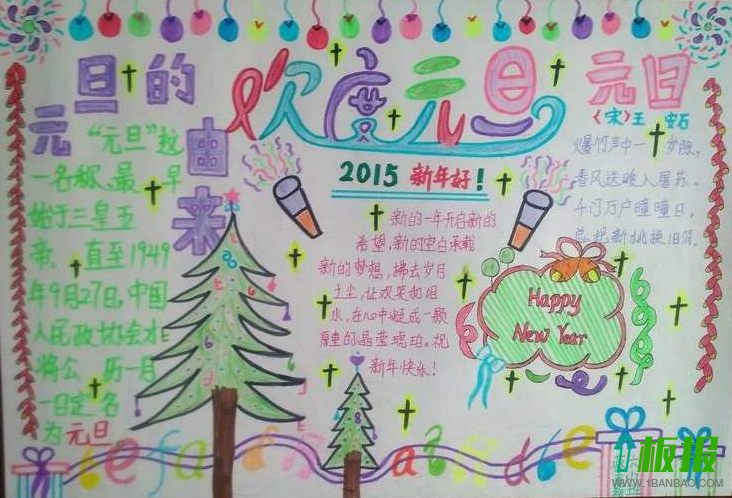 元旦的由来
"元旦"这
一名称,最早
始于三皇五
帝。直至1949
年9月27日,中国
人民政协会才
将公历一月
一日定名
为元旦
欢度元旦
2015 新年好!
新的一年开启新的
希望,新的空白承载
新的梦想,拂去岁月
土尘,让欢笑和泪
水,在心中凝成一颗
厚重的晶莹琥珀。祝
新年快乐!
元日
(宋)王安石
爆竹声中一岁除,
春风送暖入屠苏。
千门万户曈曈日,
总把新桃换旧符。
Happy
New Year
板报
WWW.1BANBAO.COM